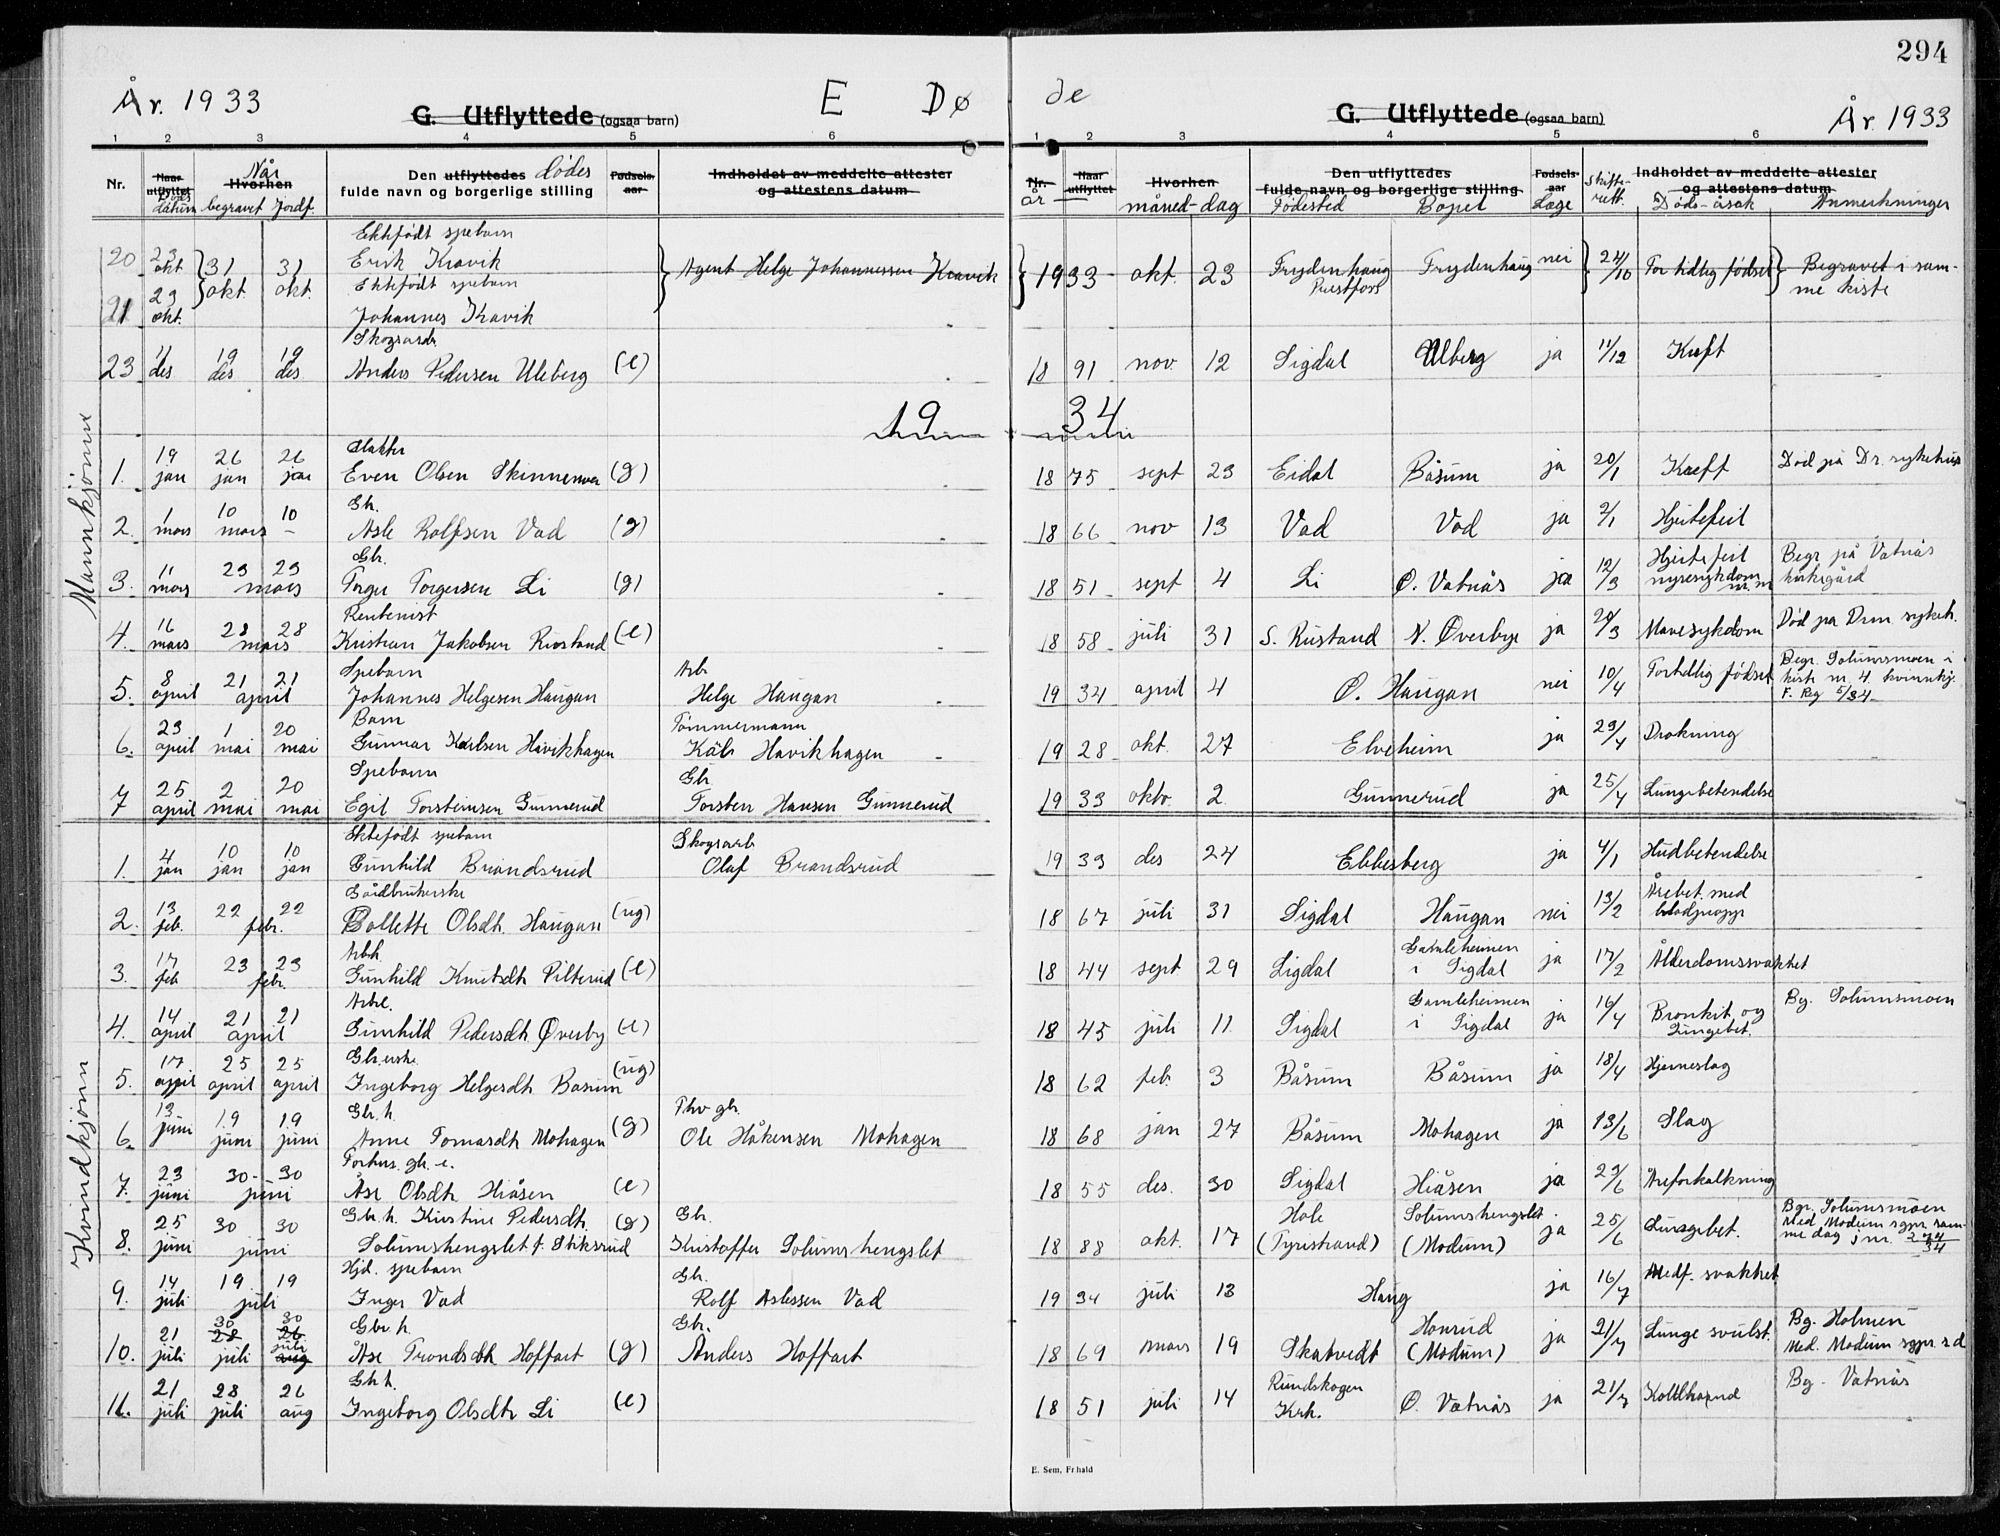 294
År. 1933 E Dø de År 1933
G. Utflyttede (ogsaa barn) G. Utflyttede (ogsaa barn)
1 2 3 4 5 6 1 2 3 4 5 6
Nr. Naar utflyttet Døds datum Når Hvorhen begravet Jordf. Den utflyttedes Dødes fulde navn og borgerlige stilling Fødsels-aar Indholdet av meddelte attester og attestens datum
Nr. år Naar utflyttet Hvorhen måned - dag Den utflyttedes fulde navn og borgerlige stilling Fødested Bopel Fødsels-aar Læge Skifte-rett. Indholdet av meddelte attester og attestens datum Døds-åsak Anmerkninger
Ektefødt spebarn
20 23 okt 31 okt. 31 okt. Erik Kravik Agent Helge Johannessen Kravik 1933 okt. 23 Frydenhaug Prestfoss Frydenhaug nei 24/10 For tidlig fødsel Begravet i sam-
me kiste
Ektefødt spebarn
21 23 okt. Johannes Kravik
Skogsarb.
23 11 des 19 des 19 des. Anders Pedersen Uleberg (e) 18 91 nov. 12 Sigdal Ulberg ja 11/12 Kreft
19 34
Mannkjønn
Slakter
1. 19 jan 26 jan 26 jan Even Olsen Skinnemoen (g) 18 75 sept 23 Eidal Båsum ja 20/1 Kreft Død på Dr. sykehus
Gb.
2. 1 mars 10 mars 10 - Asle Rolfsen Vad (g) 18 66 nov 13 Vad Vad ja 2/1 Hjertefeil
Gbr.
3. 11 mars 23 23 mars Torger Torgersen Li (g) 18 51 sept 4 Li Ø. Vatnås ja 12/3 Hjertefeil nyresykdom m.m Begr på Vatnås kirkegård
Rentenist
4. 16 mars 28 28 mars Kristian Jakobsen Rustand (e) 18 58 juli 31 S. Rustand N. Øverbye ja 20/3 Mavesykdom Død på Drm. sykeh.
Spebarn Arb
5. 8 april 21 21 april Johannes Helgesen Haugan Helge Haugan 19 34 april 4 Ø. Haugan nei 10/4 Fortidlig fødsel Begr. Solumsmoen i
kiste m. 4 kvinnkj.
F. Reg 5/34
Barn Tømmermann
6. 23 april 1 mai 20 mai Gunnar Karlsen Havikhagen Karl Havikhagen 19 28 okt. 27 Elveheim ja 23/4 Drukning
Spebarn Gb
7 25 april 2 mai 20 mai Egil Torsteinsen Gunnerud Torsten Hansen Gunnerud 19 33 oktb. 2 Gunnerud ja 25/4 Lungebetendelse
Kvindkjønn
Ektefødt spebarn Skogsarb
1. 4 jan 10 jan 10 jan Gunhild Brandsrud Olaf Brandsrud 19 33 des 24 Ebbesberg ja 4/1 Hudbetendelse
Gårdbrukerske
2. 13 feb. 22 22 febr. Bollette Olsdt. Haugan (ug) 18 67 juli 31 Sigdal Haugan nei 13/2 Årebet. med blodpropp
Arbk.
3. 17 feb 23 23 febr. Gunhild Knutsdt Pilterud (e) 18 44 sept 29 Sigdal Gamleheimen i Sigdal ja 17/2 Ålderdomssvakhet
Arbe.
4. 14 april 21 21 april Gunhild Pedersdt Øverby (e) 18 45 juli 11 Sigdal Gamleheimen i Sigdal ja 16/4 Bronkit og Lungebet. Bg. Solumsmoen
Gbrerske
5. 17 april 25 april 25 april Ingeborg Helgesdt. Båsum (ug) 18 62 feb. 3 Båsum Båsum ja 18/4 Hjerneslag
Gbr. h. Fhv gbr.
6. 13 juni 19 juni 19 juni Anne Tomasdt Mohagen (g) Ole Håkensen Mohagen 18 68 jan 27 Båsum Mohagen ja 13/6 Slag
Forhus. gb. e.
7. 23 juni 30 - 30 juni Åse Olsdt. Hiåsen (e) 18 55 des. 30 Sigdal Hiåsen ja 23/6 Åreforkalkning
8. 25 juni 30 30 juni Gbr. h. Kristine Pedersdt. (g) Solumshengslet f. Stiksrud Gbr. Kristoffer Solumshengslet 18 88 okt. 17 Hole (Tyristrand) Solumshengslet (Modum) ja 25/6 Lungebet. Bgr. Solumsmoen
Med Modum sgpr. sam-
me dag jnr. 274/34
Hjd. spebarn Gb.
9. 14 juli 19 19 juli Inger Vad Rolf Aslessen Vad 19 34 juli 13 Haug ja 16/7 Medf. svakhet
Gbr. h. Gbr.
10. 21 juli 30 28 juli 30 26 juli aug Åse Trondsdt Hoffart (g) Anders Hoffart 18 69 mars 19 Skatvedt Honrud (Modum) ja 21/7 Lunge svulst. Bg. Holmen
Med. Modum sgpr. s d
Gb. h.
11. 21 juli 28 juli 26 aug Ingeborg Olsdt Li (e) 18 51 juli 14 Rundskogen Krh. Ø. Vatnås ja 21/7 Koldbrand Bg. Vatnås
E. Sem, Fr hald